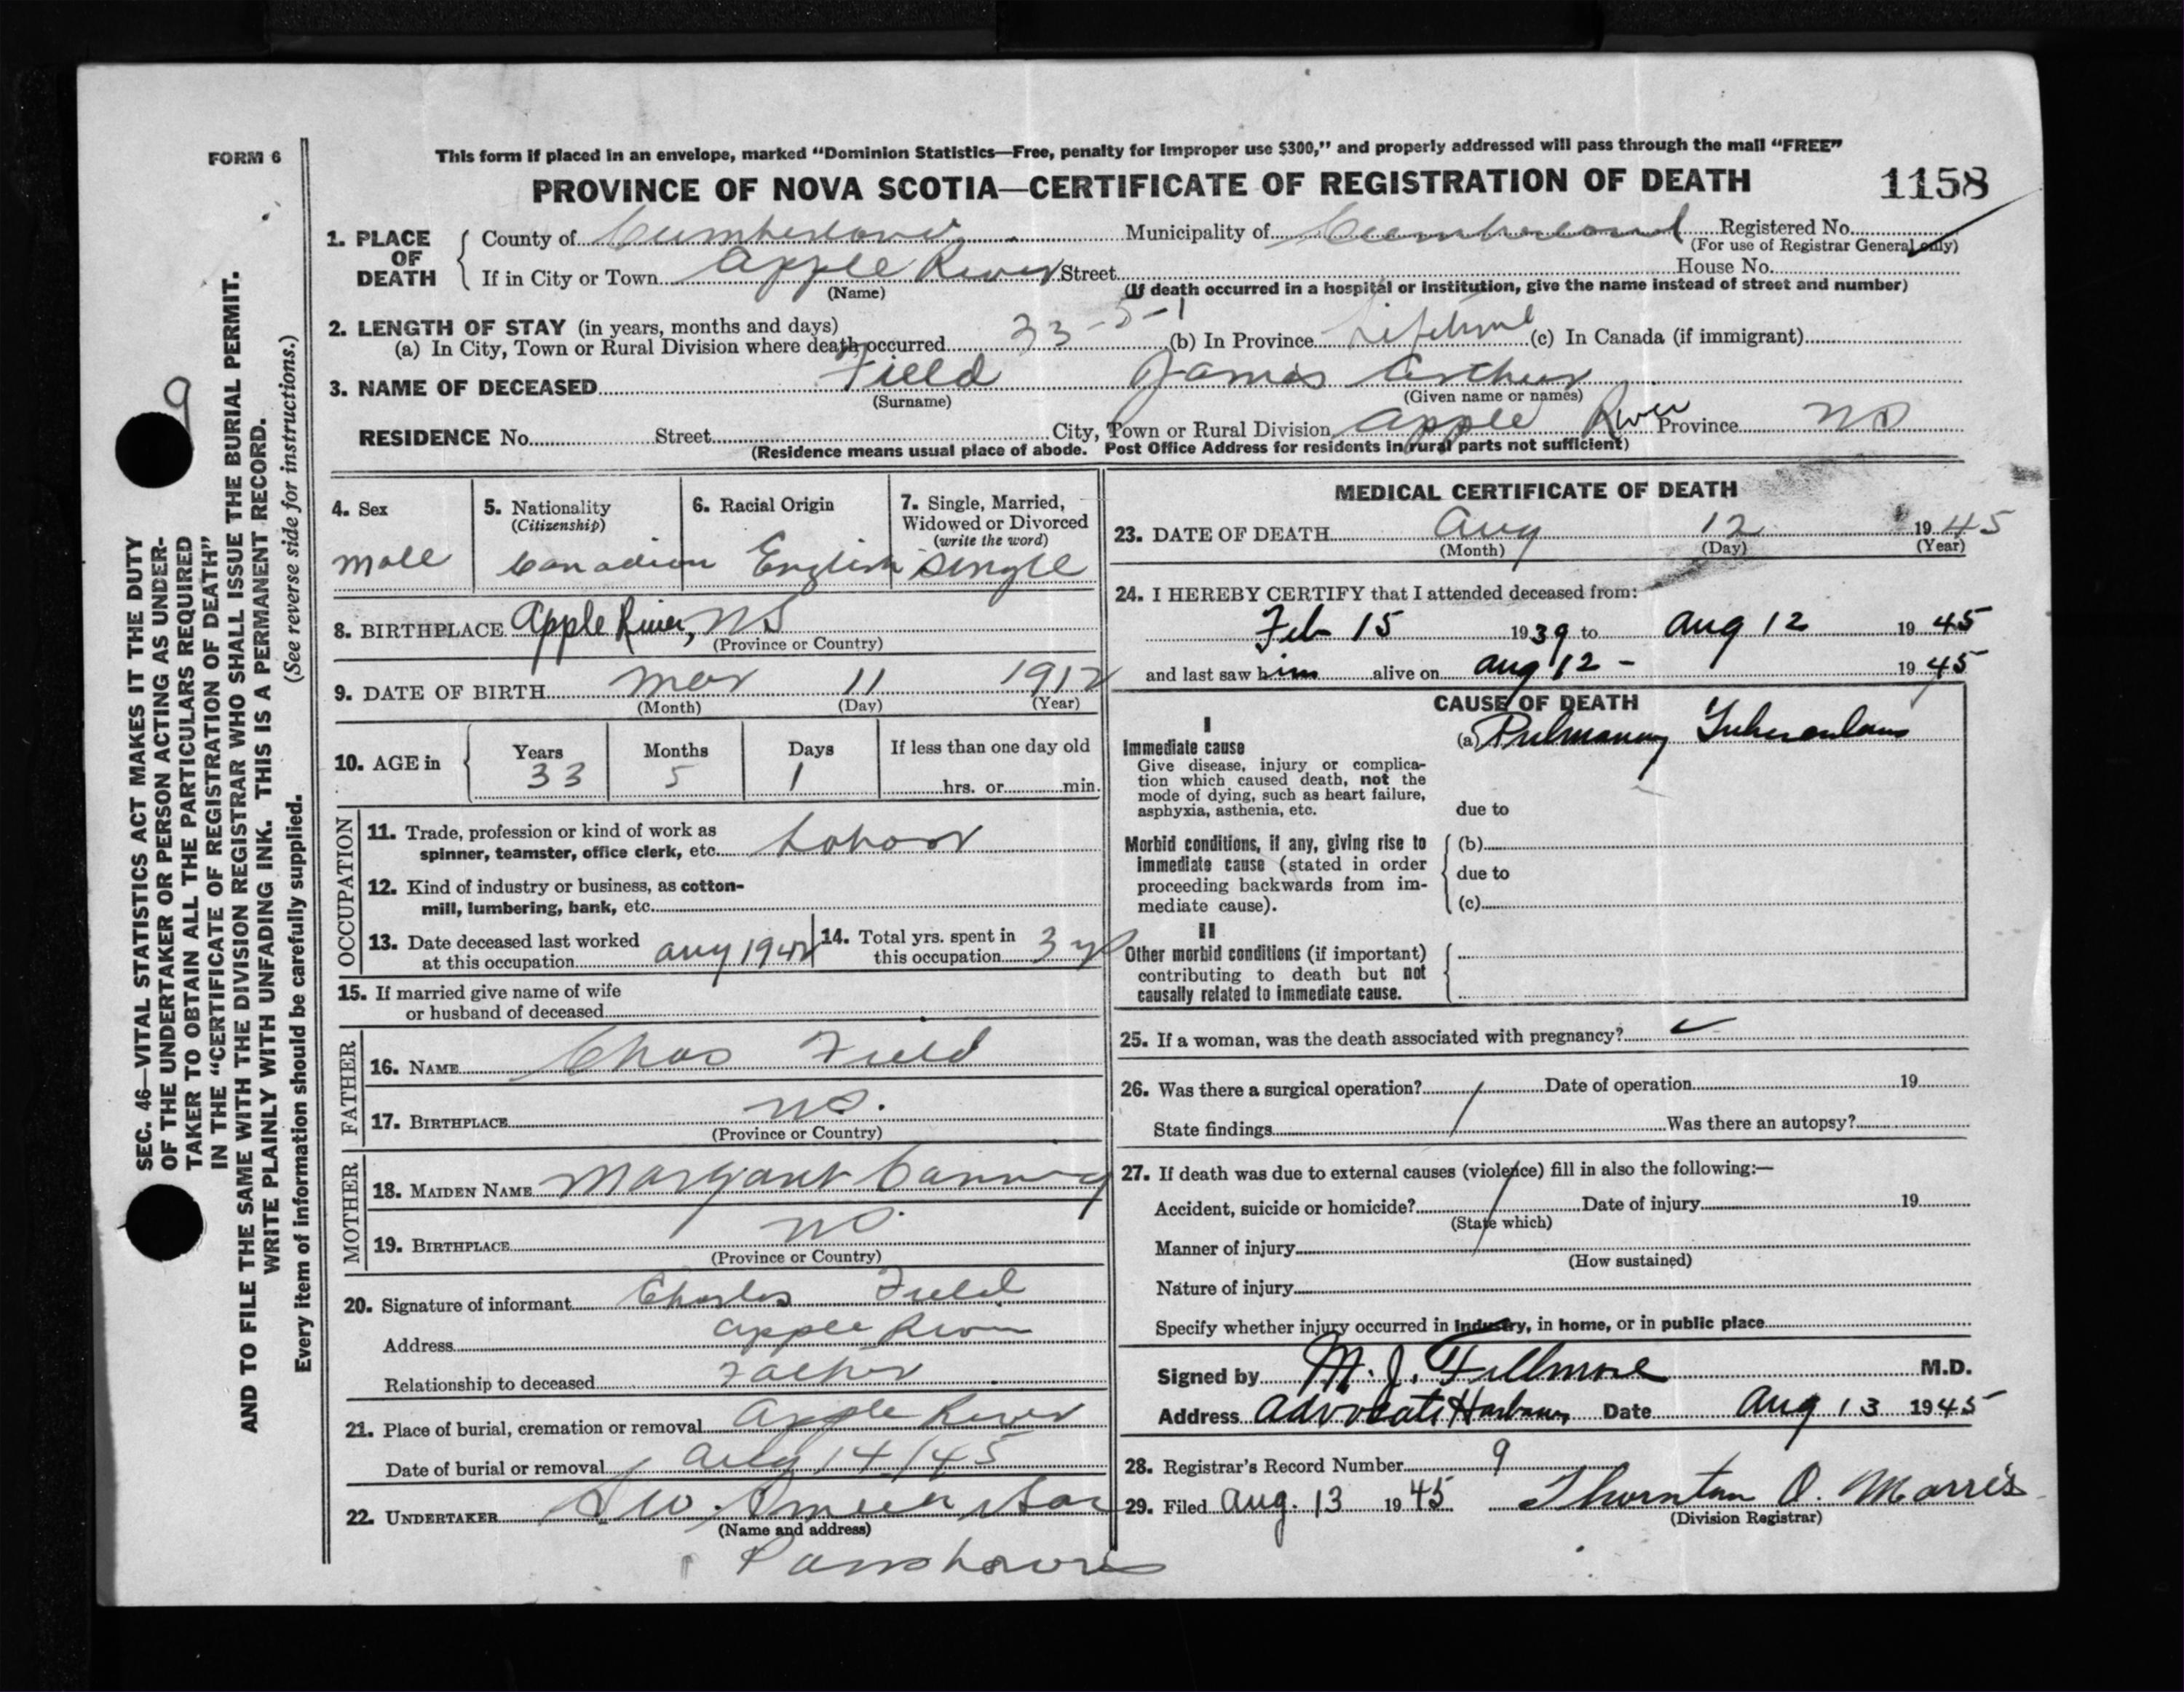 FORM 6
This form if placed in an envelope, marked “Dominion Statistics—Free, penalty for improper use $300,” and properly addressed will pass through the mail “FREE”
PROVINCE OF NOVA SCOTIA—CERTIFICATE OF REGISTRATION OF DEATH 1158
1. PLACE OF DEATH County of Cumberland Municipality of Cumberland Registered No.
(For use of Registrar General only)
If in City or Town Apple River Street House No.
(Name) (If death occurred in a hospital or institution, give the name instead of street and number)
2. LENGTH OF STAY (in years, months and days)
(a) In City, Town or Rural Division where death occurred 33-5-1 (b) In Province Lifetime (c) In Canada (if immigrant)
3. NAME OF DECEASED Field James Arthur
(Surname) (Given name or names)
RESIDENCE No. Street City, Town or Rural Division Apple River Province NS
(Residence means usual place of abode. Post Office Address for residents in rural parts not sufficient)
4. Sex 5. Nationality (Citizenship) 6. Racial Origin 7. Single, Married, Widowed or Divorced (write the word)
Male Canadian English Single
8. BIRTHPLACE Apple River, NS
(Province or Country)
9. DATE OF BIRTH Mar 11 1912
(Month) (Day) (Year)
10. AGE in Years Months Days If less than one day old
33 5 1 hrs. or min.
OCCUPATION
11. Trade, profession or kind of work as
spinner, teamster, office clerk, etc. Labour
12. Kind of industry or business, as cotton-
mill, lumbering, bank, etc.
13. Date deceased last worked
at this occupation Aug 1942
14. Total yrs. spent in
this occupation 3 y
15. If married give name of wife
or husband of deceased
FATHER
16. NAME Chas Field
17. BIRTHPLACE NS.
(Province or Country)
MOTHER
18. MAIDEN NAME Margaret Canning
19. BIRTHPLACE NS.
(Province or Country)
20. Signature of informant Charles Field
Address Apple River
Relationship to deceased Father
21. Place of burial, cremation or removal Apple River
Date of burial or removal Aug 14/45
22. UNDERTAKER
(Name and address)
MEDICAL CERTIFICATE OF DEATH
23. DATE OF DEATH Aug 12 1945
(Month) (Day) (Year)
24. I HEREBY CERTIFY that I attended deceased from:
Feb 15 1939 to Aug 12 1945
and last saw him alive on Aug 12 - 1945
CAUSE OF DEATH
I
Immediate cause (a) Pulmonary Tuberculosis
Give disease, injury or complica-
tion which caused death, not the
mode of dying, such as heart failure,
asphyxia, asthenia, etc. due to
Morbid conditions, if any, giving rise to (b)
immediate cause (stated in order due to
proceeding backwards from im-
mediate cause). (c)
II
Other morbid conditions (if important)
contributing to death but not
causally related to immediate cause.
25. If a woman, was the death associated with pregnancy?
26. Was there a surgical operation? Date of operation 19
State findings Was there an autopsy?
27. If death was due to external causes (violence) fill in also the following:—
Accident, suicide or homicide? Date of injury 19
(State which)
Manner of injury
(How sustained)
Nature of injury
Specify whether injury occurred in Industry, in home, or in public place
Signed by M. J. Fillmore M.D.
Address Advocate Harbour Date Aug 13 1945
28. Registrar's Record Number 9
29. Filed Aug. 13 1945 Thornton O. Morris
(Division Registrar)
9
SEC. 46—VITAL STATISTICS ACT MAKES IT THE DUTY
OF THE UNDERTAKER OR PERSON ACTING AS UNDER-
TAKER TO OBTAIN ALL THE PARTICULARS REQUIRED
IN THE “CERTIFICATE OF REGISTRATION OF DEATH”
AND TO FILE THE SAME WITH THE DIVISION REGISTRAR WHO SHALL ISSUE THE BURIAL PERMIT.
WRITE PLAINLY WITH UNFADING INK. THIS IS A PERMANENT RECORD.
Every item of information should be carefully supplied. (See reverse side for instructions.)